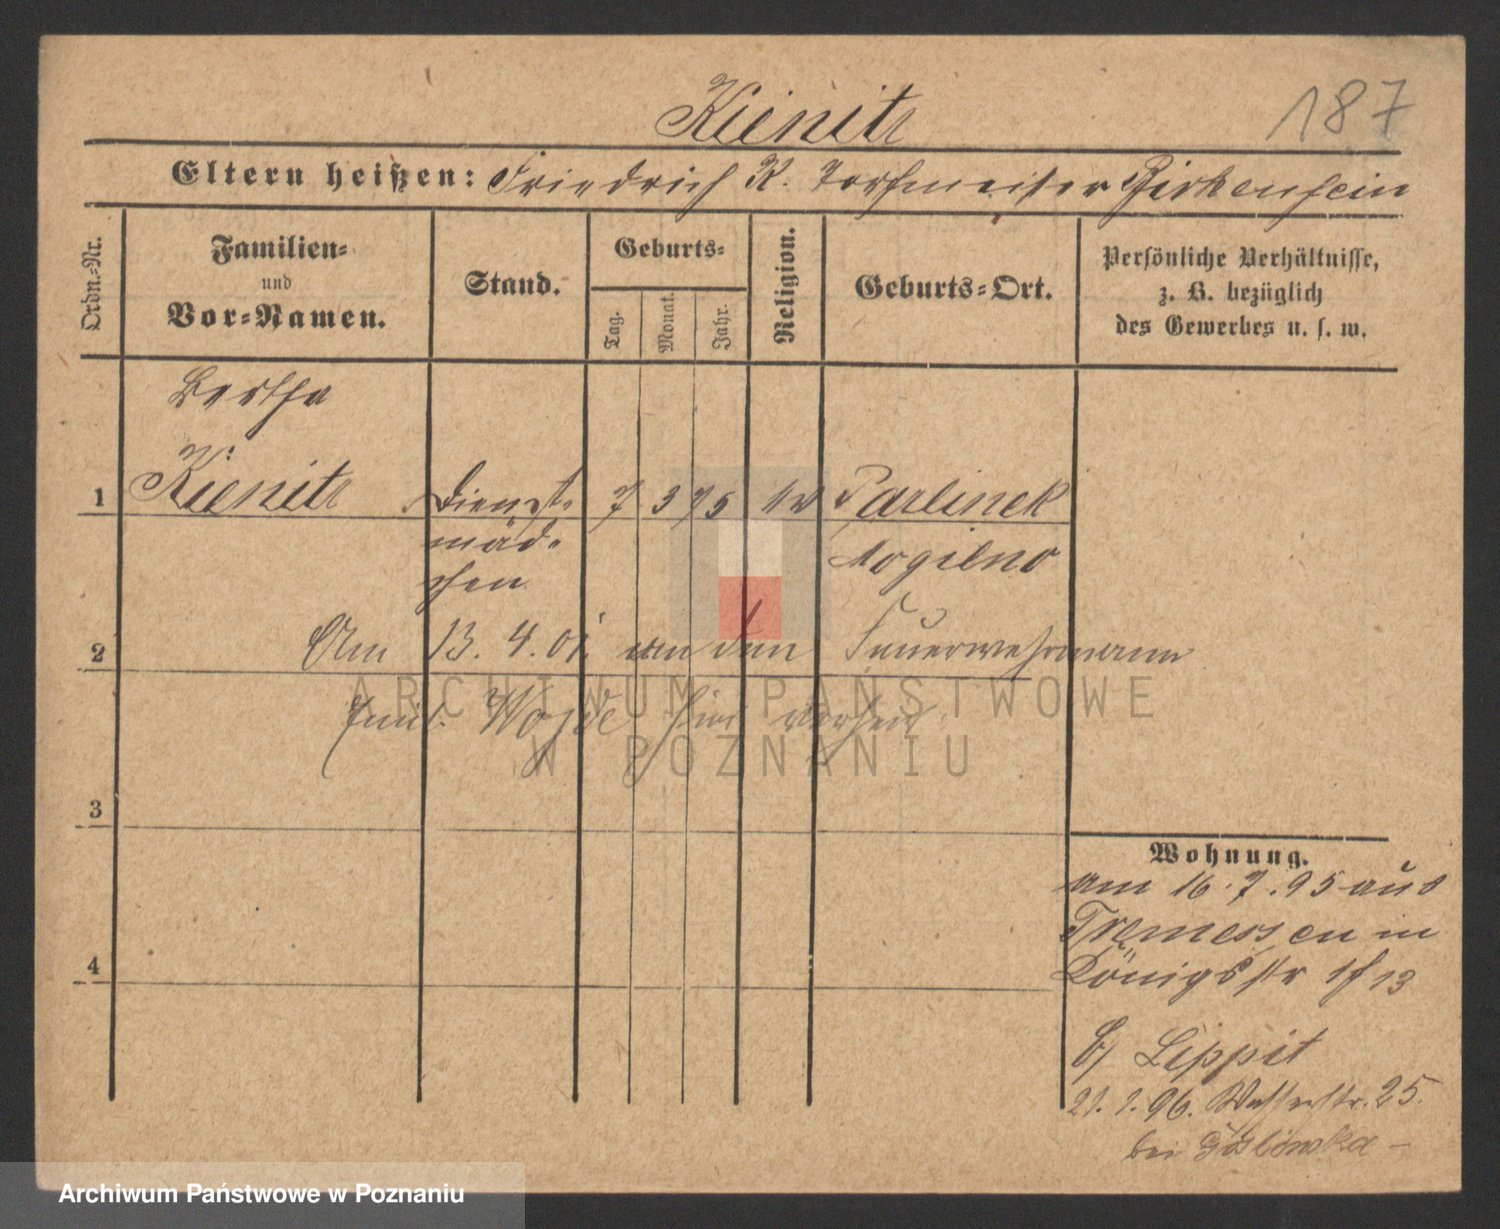 187
Kienitz
Eltern heißen: Friedrich K. Torfmeister Birkenhein
Ordn.-Nr.
Familien- und Vor-Namen.
Stand.
Geburts-
Tag. Monat. Jahr.
Religion.
Geburts-Ort.
Persönliche Verhältnisse,
z. B. bezüglich
des Gewerbes u. s. w.
Bertha
1 Kienitz Dienst- 7 3 75 Parlinek
mäd- Mogilno
chen
2 Am 13. 4. 01. an den Feuerwehrmann
hier
3
4
Wohnung.
am 16.7.95 aus
Tremessen in
Königsstr 13
b/ Lippit
21.1.96. Wasserstr. 25.
bei
ARCHIWUM PAŃSTWOWE
W POZNANIU
Archiwum Państwowe w Poznaniu